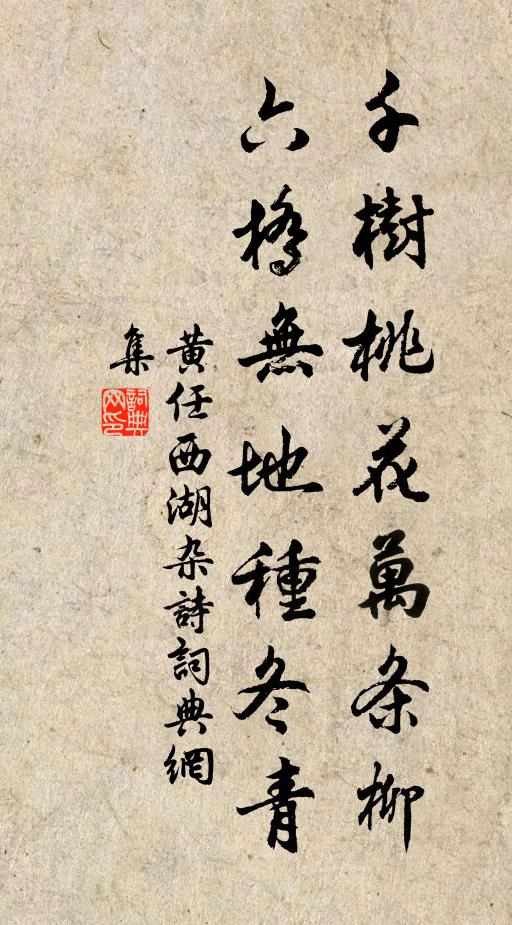 千樹桃花萬条柳
六橋無地種冬青
黄任西湖杂詩詞典網
集
詞典網印